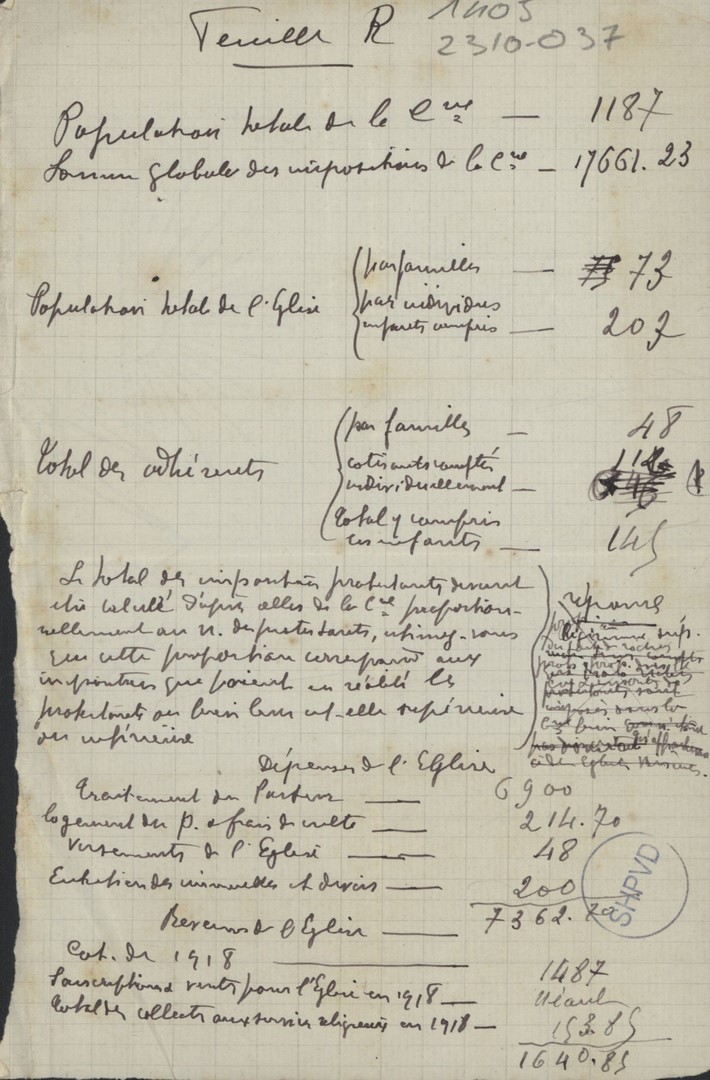 Feuille R 1405
2310-037
Population totale de la Cne — 1187
Somme globale des impositions de la Cne — 17661.23
par familles — 73
Population totale de l'Eglise
par individus
enfants compris — 207
par familles — 48
Total des adhérents
cotisants comptés
individuellement —
Total y compris
les enfants — 145
Le total des impositions protestantes devant
être calculé d'après celles de la Cne proportion-
nellement au n. de protestants, estimez-vous
que cette proportion correspond aux
impositions que paient en réalité les
protestants ou bien leur est-elle supérieure
ou inférieure
réponse
Dépenses de l'Eglise
Traitement du Pasteur — 6900
logement du p. & frais de culte — 214.70
Versements de l'Eglise — 48
Entretien des immeubles et divers — 200
7362.70
SHPVD
Revenus de l'Eglise —
Cot. de 1918 — 1487
Souscriptions & vents pour l'Eglise en 1918 — Néant
Total des collectes aux services religieux en 1918 — 153.85
1640.85